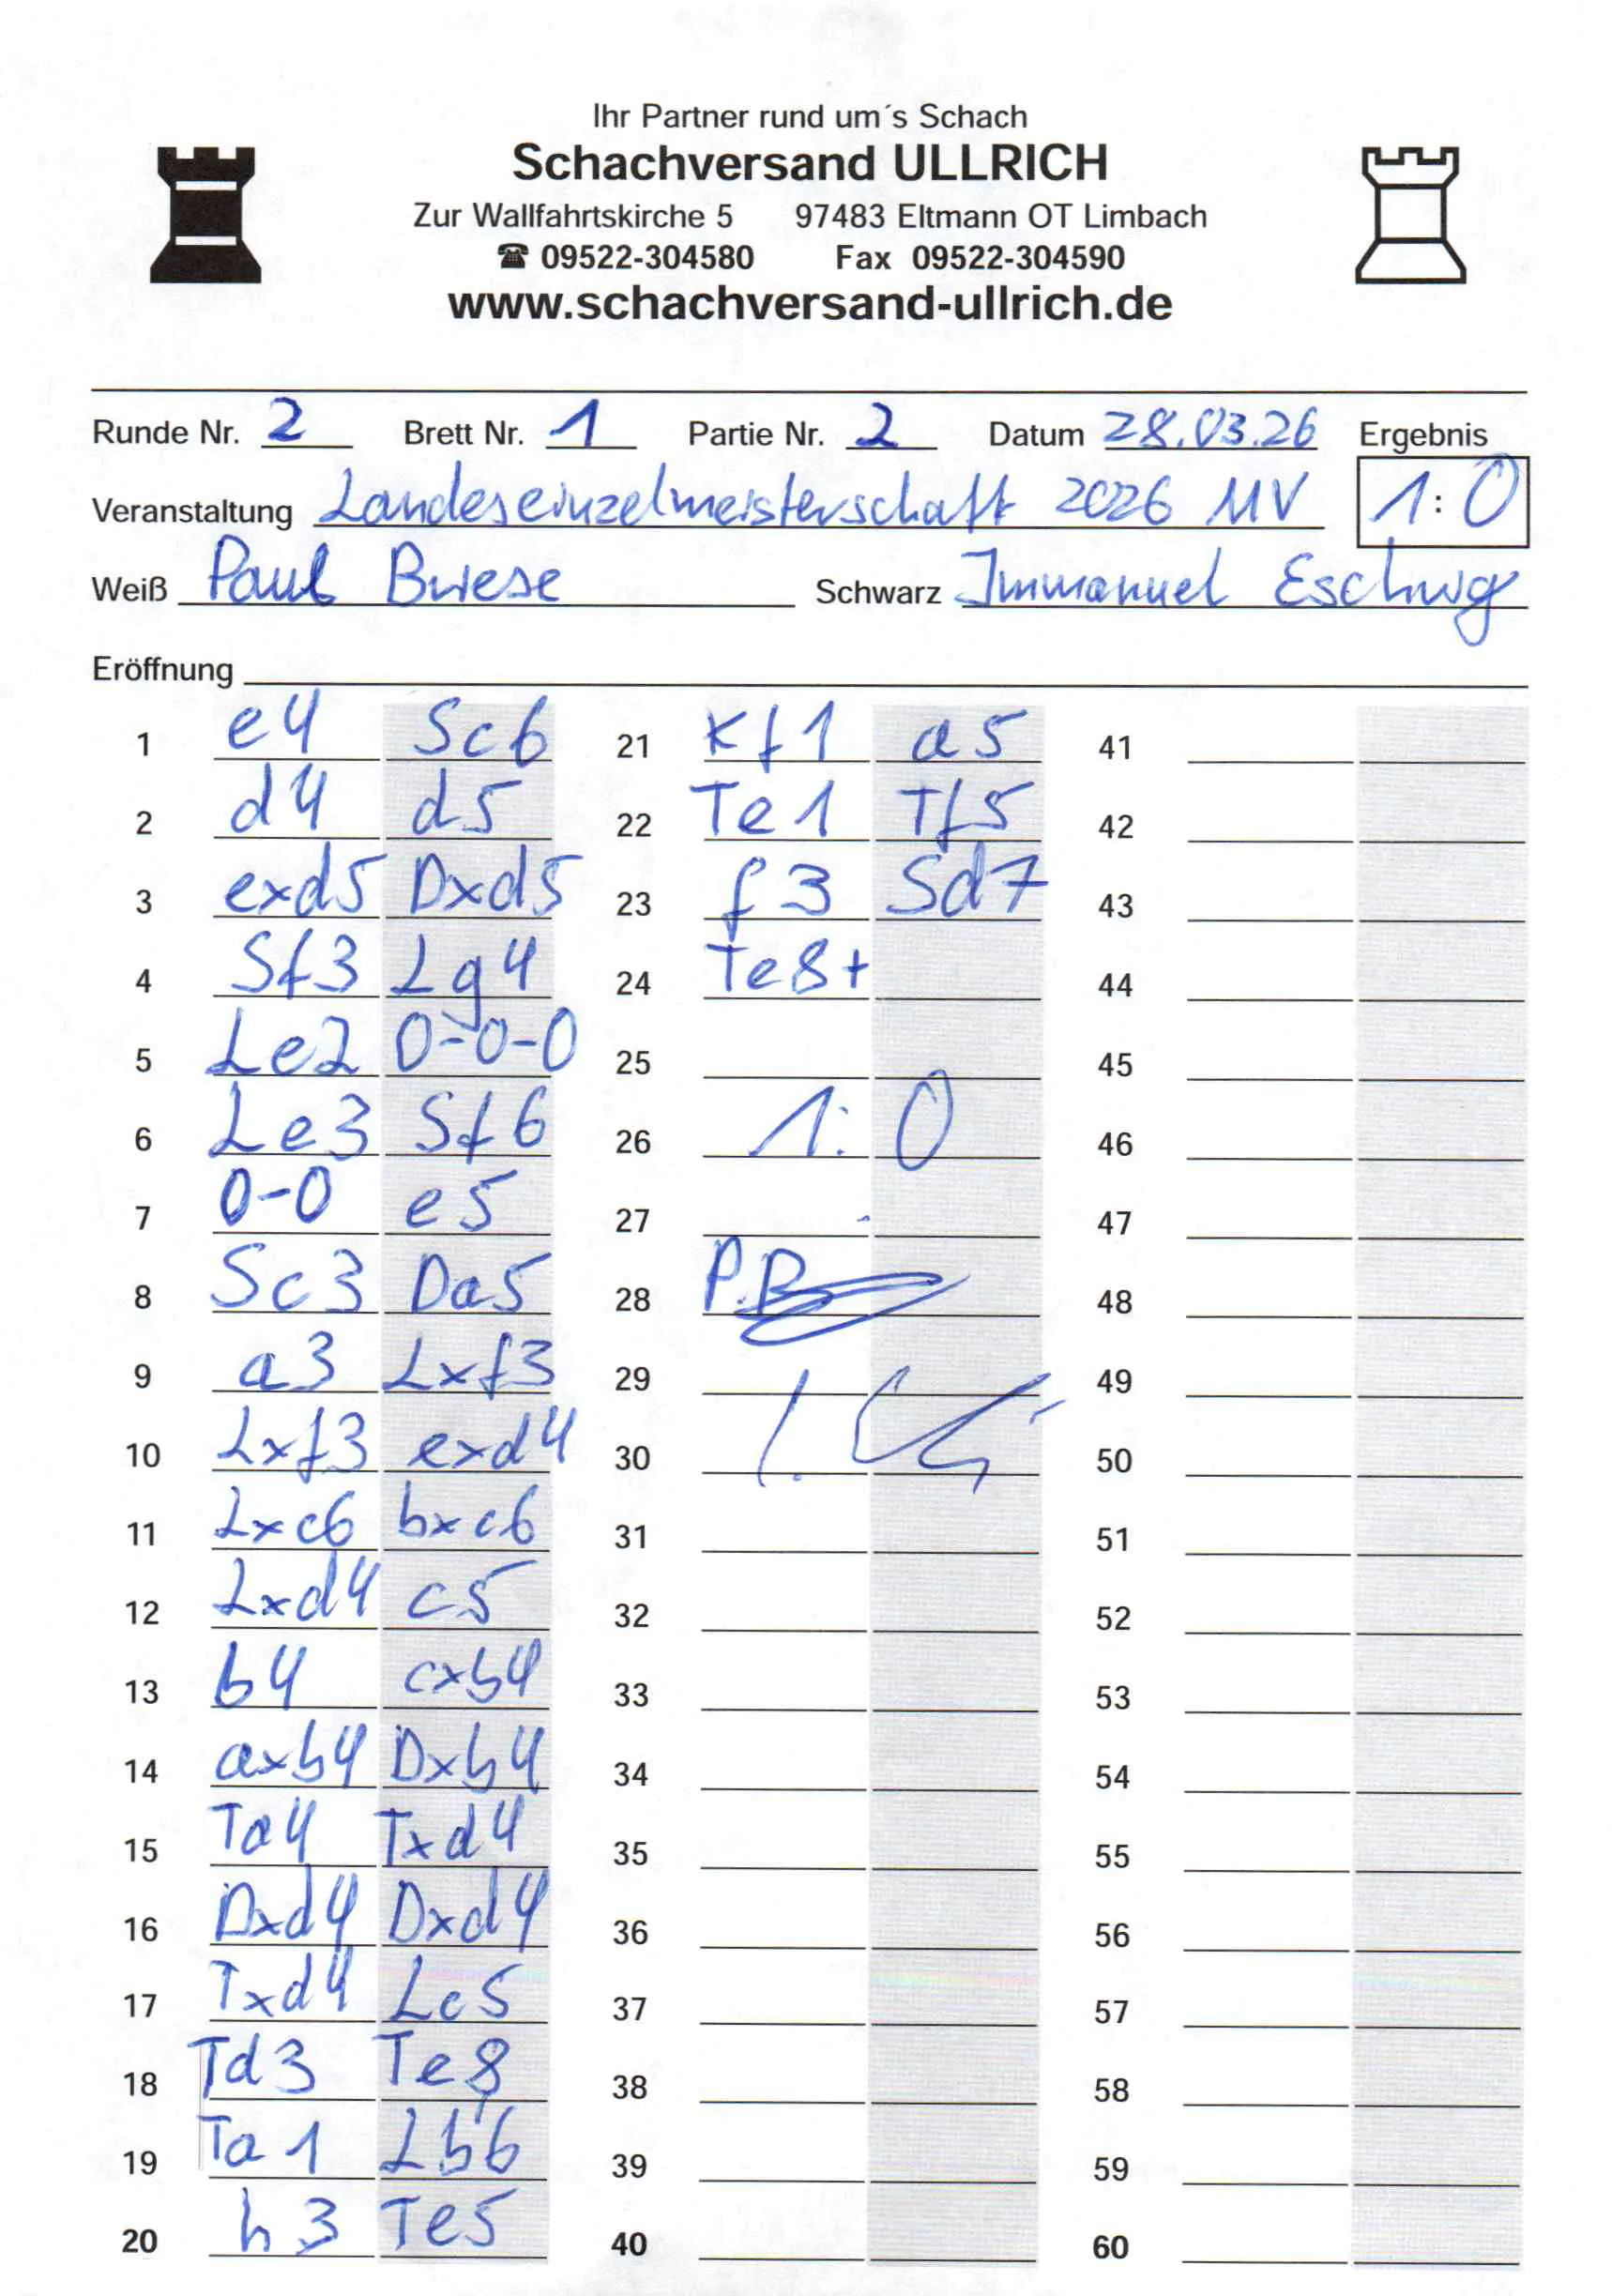 Ihr Partner rund um´s Schach
Schachversand ULLRICH
Zur Wallfahrtskirche 5 97483 Eltmann OT Limbach
☎ 09522-304580 Fax 09522-304590
www.schachversand-ullrich.de
Runde Nr. 2 Brett Nr. 1 Partie Nr. 2 Datum 28.03.26 Ergebnis
Veranstaltung Landeseinzelmeisterschaft 2026 MV 1:0
Weiß Paul Schwarz Immanuel
Eröffnung
1 e4 Sc6 21 Kf1 a5 41
2 d4 d5 22 Te1 Tf5 42
3 exd5 Dxd5 23 f3 Sd7 43
4 Sf3 Lg4 24 Te8+ 44
5 Le2 0-0-0 25 45
6 Le3 Sf6 26 1:0 46
7 0-0 e5 27 47
8 Sc3 Da5 28 P.B 48
9 a3 Lxf3 29 49
10 Lxf3 exd4 30 50
11 Lxc6 bxc6 31 51
12 Lxd4 c5 32 52
13 b4 cxb4 33 53
14 axb4 Dxb4 34 54
15 Ta4 Txd4 35 55
16 Dxd4 Dxd4 36 56
17 Txd4 Lc5 37 57
18 Td3 Te8 38 58
19 Ta1 Lb6 39 59
20 h3 Te5 40 60